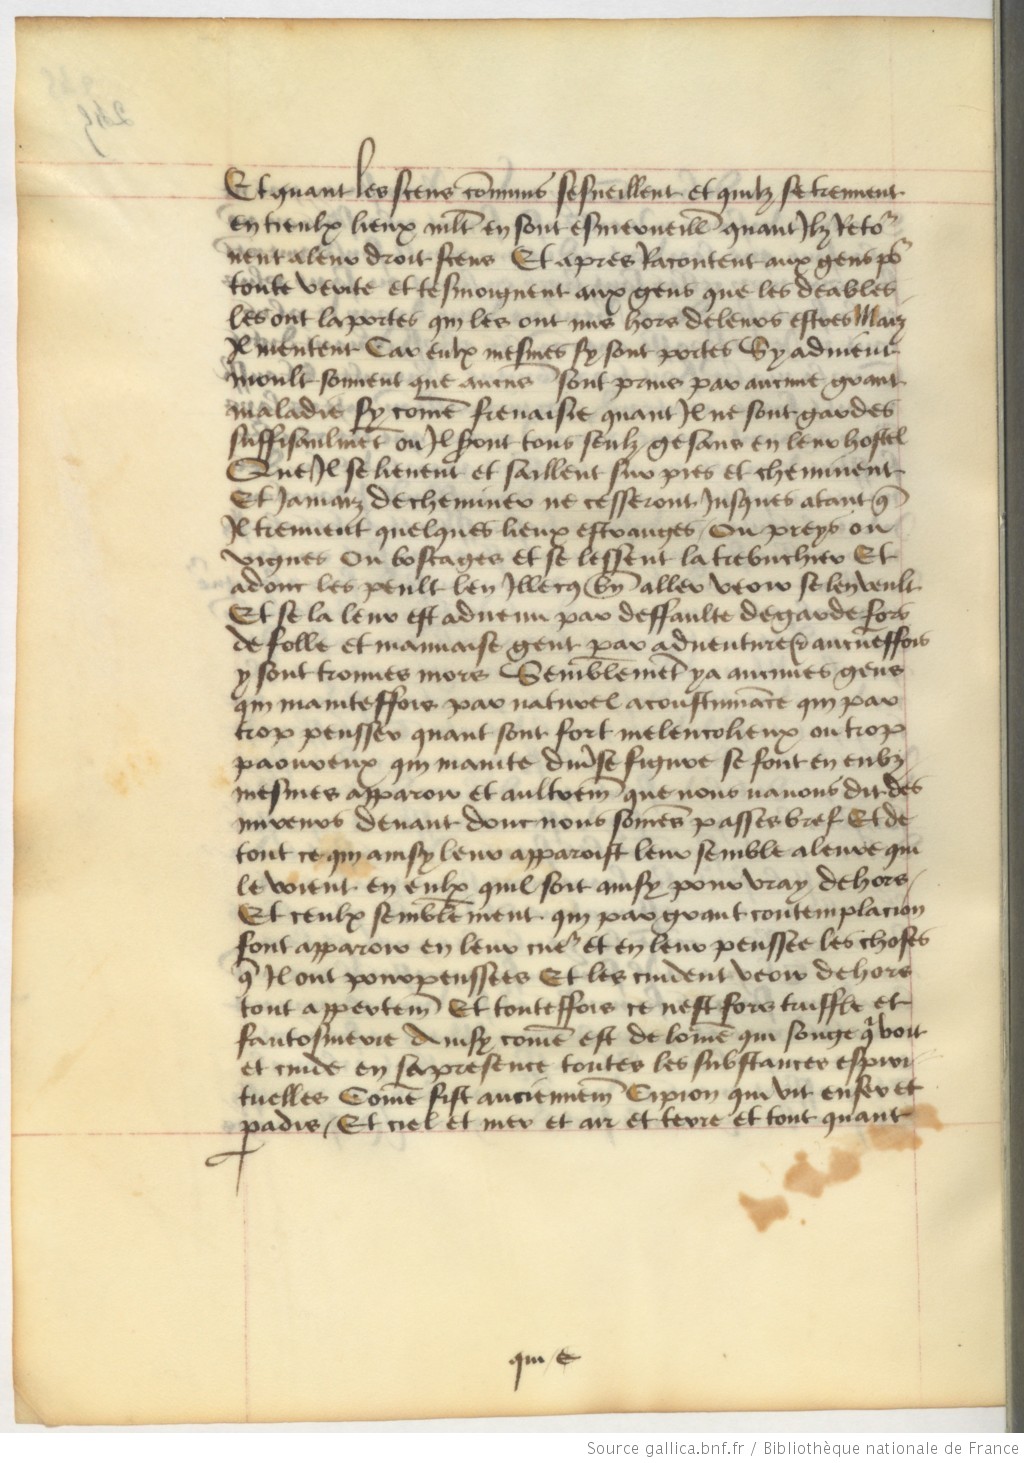 Et quant les scens cōmuns sesueillent et quilz se treuuent
en tieulx lieux mlt en sont esmerueill quant Ilz Reto
nent a leur droit scens Et apres Racontent aux gens po
toute verite et tesmoignent aux gens que les deables
les ont la portes qui les ont mis hors de leurs estres Maiz
Il mentent Car eulx mesmes sy sont portes Sy aduient
moult souuent que aucūs sont prins par aucune grant
maladie sy comē frenaisie quant Il ne sont gardes
suffisaulmēt ou Il sont tous seulz gesans en leur hostel
Que Il se lieuent et saillent sur pies et cheminent
Et Jamaiz de cheminer ne cesseront Jusques atant q̄
Il treuuent quelques lieux estranges / Ou preys ou
vignes Ou boscages et se lessent la trebuchier Et
adonc les peult len Illecq bn̄ aller veoir se len veult
Et se la leur est aduenu par deffaulte de garde fors
de folle et mauuaise gent par aduenture aucūeffois
y sont trouues mors Semblemēt y a aucunes gens
qui mainteffois par naturel acoustumāce qui par
trop pensser quant sont fort melencolieux ou trop
paoureux qui mainte diu̇se figure se font en eulz
mesmes apparoir et aultrem̄ que nous nauons dit des
mireurs deuant dont nous somēs passes bref Et de
tout ce qui ainsy leur apparoist leur semble a leure qui
le voient en eulx quil soit ainsy pour vray dehors /
Et ceulx semblement qui par grant contemplacion
font apparoir en leur cue et en leur penssee les choses
q̄ Il ont pourpenssees Et les cuident veoir dehors
tout appertem̄ Et touteffois ce nest fors truffle et
fantosmerie Ainsy comē est de lomē qui songe q̄ voit
et cuide en sa presence toutes les substances espiri
tuelles Comē fist anciennem̄ Cipion qui vit enfer et
padis / Et ciel et mer et air et terre et tout quant
qui / e
Source gallica.bnf.fr / Bibliothèque nationale de France